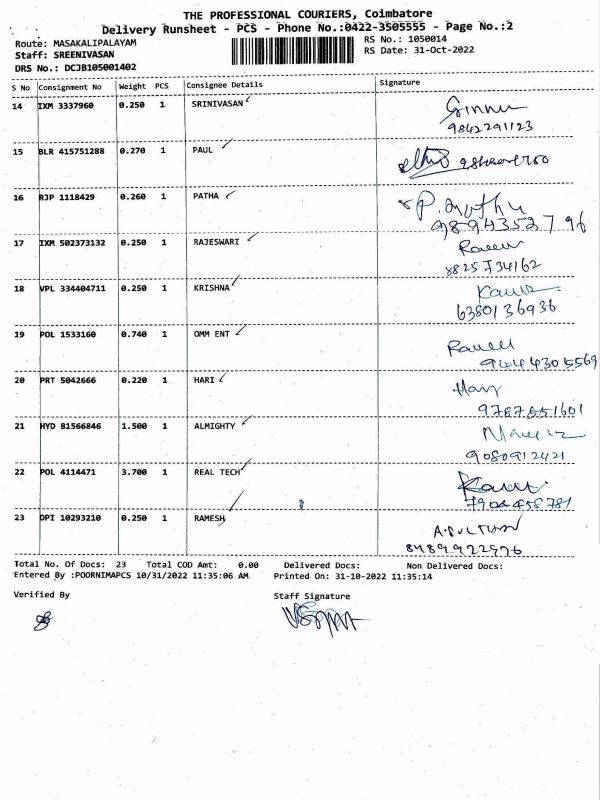 THE PROFESSIONAL COURIERS, Coimbatore
Delivery Runsheet - PCS - Phone No.:0422-3505555 - Page No.:2
Route: MASAKALIPALAYAM
RS No.: 1050014
Staff: SREENIVASAN
RS Date: 31-Oct-2022
DRS No.: DCJB105001402
S No Consignment No Weight PCS Consignee Details Signature
14 IXM 3337960 0.250 1 SRINIVASAN
9842291123
15 BLR 415751288 0.270 1 PAUL
16 RJP 1118429 0.260 1 PATHA
P. Muthu
9894352796
17 IXM 502373132 0.250 1 RAJESWARI
8825734162
18 VPL 334404711 0.250 1 KRISHNA
6380136936
19 POL 1533160 0.740 1 OMM ENT
9444305569
20 PRT 5042666 0.220 1 HARI
Hary
9787551601
21 HYD 81566846 1.500 1 ALMIGHTY
9080912421
22 POL 4114471 3.700 1 REAL TECH
7904458781
23 DPI 10293210 0.250 1 RAMESH
8489922976
Total No. Of Docs: 23 Total COD Amt: 0.00 Delivered Docs: Non Delivered Docs:
Entered By :POORNIMAPCS 10/31/2022 11:35:06 AM Printed On: 31-10-2022 11:35:14
Verified By Staff Signature